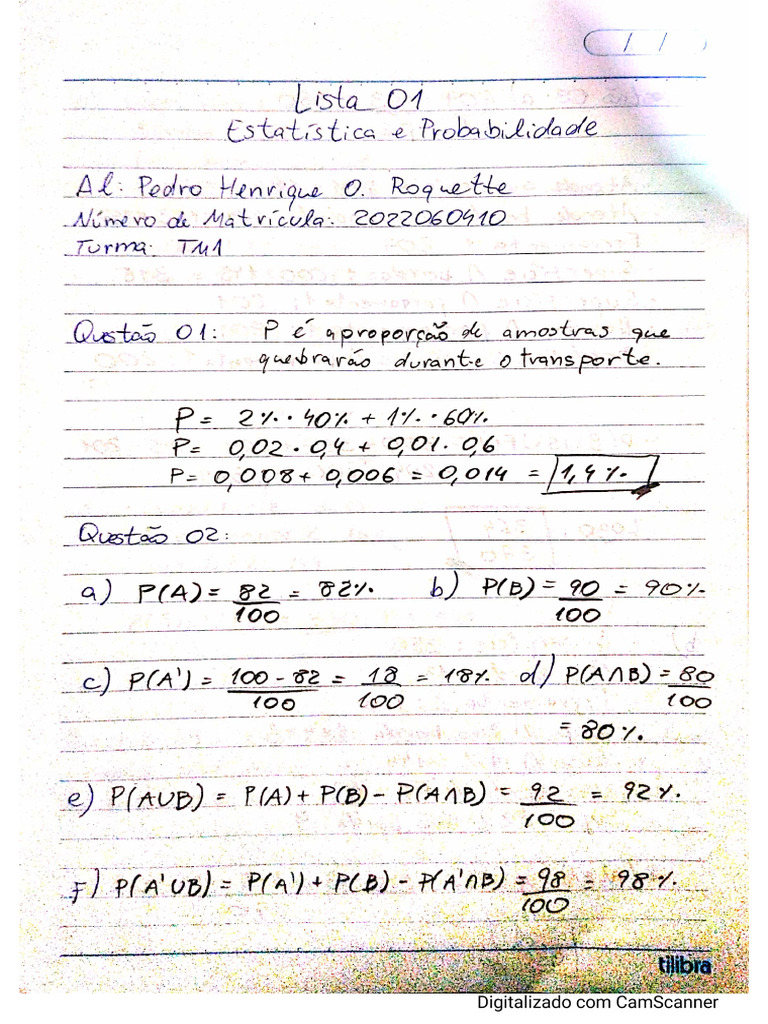 Lista 01
Estatística e Probabilidade
Al: Pedro Henrique O. Roquette
Número de Matrícula: 2022060410
Turma: TM1
Questão 01: P é a proporção de amostras que
quebrarão durante o transporte.
P = 2% · 40% + 1% · 60%
P = 0,02 · 0,4 + 0,01 · 0,6
P = 0,008 + 0,006 = 0,014 = 1,4%
Questão 02:
a) P(A) = 82/100 = 82% b) P(B) = 90/100 = 90%
c) P(A') = 100 - 82/100 = 18/100 = 18% d) P(A∩B) = 80/100
= 80%
e) P(A∪B) = P(A) + P(B) - P(A∩B) = 92/100 = 92%
F) P(A'∪B) = P(A') + P(B) - P(A'∩B) = 98/100 = 98%
tilibra
Digitalizado com CamScanner